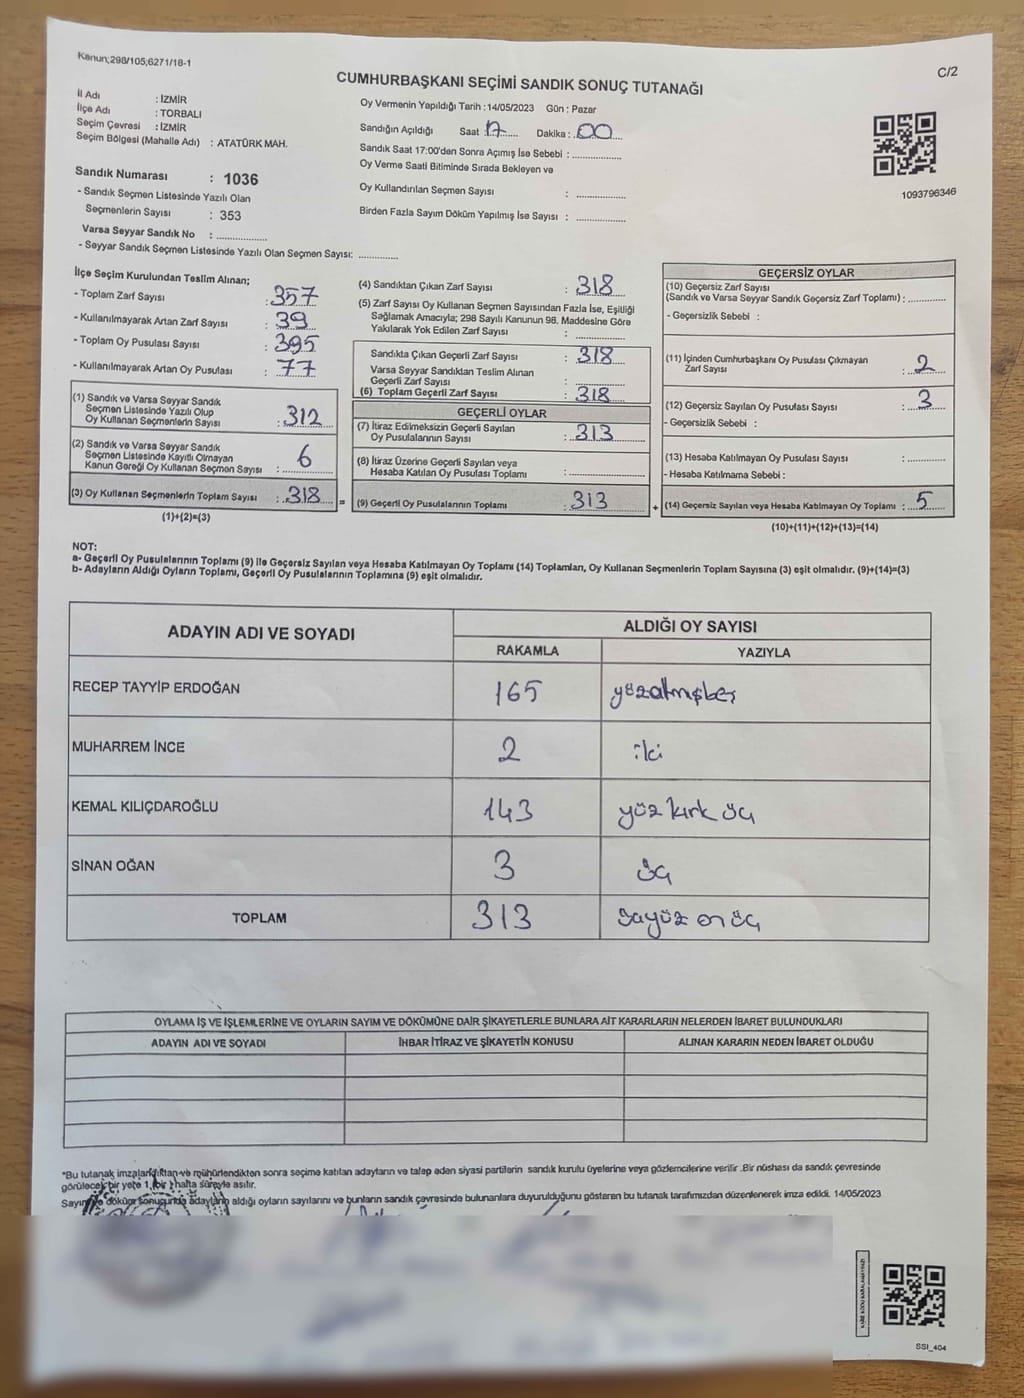 Kanun;298/105;6271/18-1
C/2
CUMHURBAŞKANI SEÇİMİ SANDIK SONUÇ TUTANAĞI
İl Adı : İZMİR
İlçe Adı : TORBALI
Seçim Çevresi : İZMİR
Seçim Bölgesi (Mahalle Adı) : ATATÜRK MAH.
Sandık Numarası : 1036
- Sandık Seçmen Listesinde Yazılı Olan
Seçmenlerin Sayısı : 353
Varsa Seyyar Sandık No : ..................
- Seyyar Sandık Seçmen Listesinde Yazılı Olan Seçmen Sayısı: ..............
Oy Vermenin Yapıldığı Tarih : 14/05/2023 Gün : Pazar
Sandığın Açıldığı Saat : 17 Dakika : 00
Sandık Saat 17:00'den Sonra Açımış İse Sebebi : ..................
Oy Verme Saati Bitiminde Sırada Bekleyen ve
Oy Kullandırılan Seçmen Sayısı : ..................
Birden Fazla Sayım Döküm Yapılmış İse Sayısı : ..................
1093796346
İlçe Seçim Kurulundan Teslim Alınan;
- Toplam Zarf Sayısı : 357
- Kullanılmayarak Artan Zarf Sayısı : 39
- Toplam Oy Pusulası Sayısı : 395
- Kullanılmayarak Artan Oy Pusulası : 77
(1) Sandık ve Varsa Seyyar Sandık
Seçmen Listesinde Yazılı Olup
Oy Kullanan Seçmenlerin Sayısı : 312
(2) Sandık ve Varsa Seyyar Sandık
Seçmen Listesinde Kayıtlı Olmayan
Kanun Gereği Oy Kullanan Seçmen Sayısı : 6
(3) Oy Kullanan Seçmenlerin Toplam Sayısı : 318 =
(1)+(2)=(3)
(4) Sandıktan Çıkan Zarf Sayısı : 318
(5) Zarf Sayısı Oy Kullanan Seçmen Sayısından Fazla İse, Eşitliği
Sağlamak Amacıyla; 298 Sayılı Kanunun 98. Maddesine Göre
Yakılarak Yok Edilen Zarf Sayısı : ..................
Sandıkta Çıkan Geçerli Zarf Sayısı : 318
Varsa Seyyar Sandıktan Teslim Alınan
Geçerli Zarf Sayısı : ..................
(6) Toplam Geçerli Zarf Sayısı : 318
GEÇERLİ OYLAR
(7) İtiraz Edilmeksizin Geçerli Sayılan
Oy Pusulalarının Sayısı : 313
(8) İtiraz Üzerine Geçerli Sayılan veya
Hesaba Katılan Oy Pusulası Toplamı : ..................
(9) Geçerli Oy Pusulalarının Toplamı : 313 +
GEÇERSİZ OYLAR
(10) Geçersiz Zarf Sayısı
(Sandık ve Varsa Seyyar Sandık Geçersiz Zarf Toplamı) : ..............
- Geçersizlik Sebebi :
(11) İçinden Cumhurbaşkanı Oy Pusulası Çıkmayan
Zarf Sayısı : 2
(12) Geçersiz Sayılan Oy Pusulası Sayısı : 3
- Geçersizlik Sebebi :
(13) Hesaba Katılmayan Oy Pusulası Sayısı : ..............
- Hesaba Katılmama Sebebi :
(14) Geçersiz Sayılan veya Hesaba Katılmayan Oy Toplamı : 5
(10)+(11)+(12)+(13)=(14)
NOT:
a- Geçerli Oy Pusulalarının Toplamı (9) ile Geçersiz Sayılan veya Hesaba Katılmayan Oy Toplamı (14) Toplamları, Oy Kullanan Seçmenlerin Toplam Sayısına (3) eşit olmalıdır. (9)+(14)=(3)
b- Adayların Aldığı Oyların Toplamı, Geçerli Oy Pusulalarının Toplamına (9) eşit olmalıdır.
ADAYIN ADI VE SOYADI ALDIĞI OY SAYISI
RAKAMLA YAZIYLA
RECEP TAYYİP ERDOĞAN 165 yüzatmışbeş
MUHARREM İNCE 2 iki
KEMAL KILIÇDAROĞLU 143 yüz kırk üç
SİNAN OĞAN 3 üç
TOPLAM 313 üçyüz on üç
OYLAMA İŞ VE İŞLEMLERİNE VE OYLARIN SAYIM VE DÖKÜMÜNE DAİR ŞİKAYETLERLE BUNLARA AİT KARARLARIN NELERDEN İBARET BULUNDUKLARI
ADAYIN ADI VE SOYADI İHBAR İTİRAZ VE ŞİKAYETİN KONUSU ALINAN KARARIN NEDEN İBARET OLDUĞU
*Bu tutanak imzalandıktan ve mühürlendikten sonra seçime katılan adayların ve talep eden siyasi partilerin sandık kurulu üyelerine veya gözlemcilerine verilir .Bir nüshası da sandık çevresinde
görülecek bir yere 1 (bir) hafta süreyle asılır.
Sayım ve döküm sonucunda adayların aldığı oyların sayılarını ve bunların sandık çevresinde bulunanlara duyurulduğunu gösteren bu tutanak tarafımızdan düzenlenerek imza edildi. 14/05/2023
SSI_404